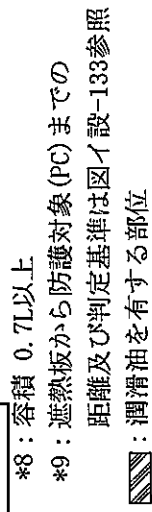 *8：容積 0.7L以上
*9：遮熱板から防護対象(PC)までの
距離及び判定基準は図イ設-133参照
：潤滑油を有する部位